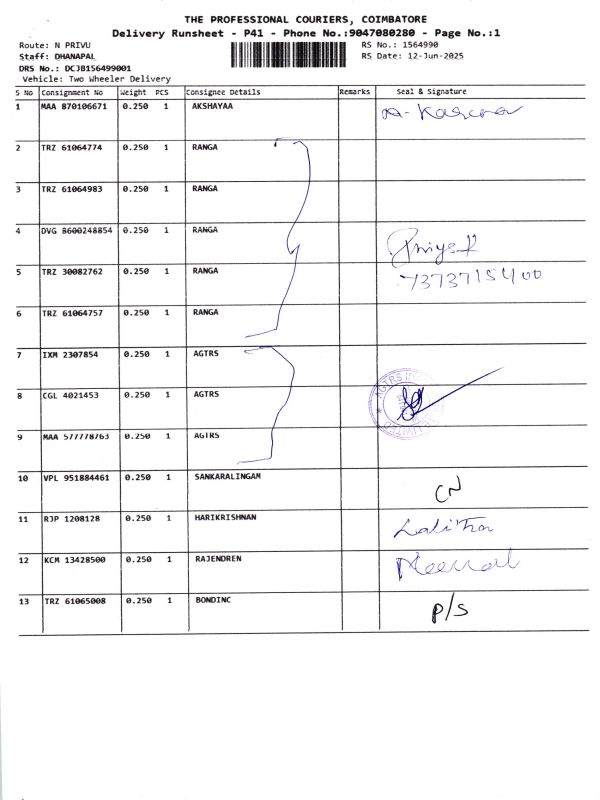 THE PROFESSIONAL COURIERS, COIMBATORE
Delivery Runsheet - P41 - Phone No.:9047080280 - Page No.:1
Route: N PRIVU RS No.: 1564990
Staff: DHANAPAL RS Date: 12-Jun-2025
DRS No.: DCJB156499001
Vehicle: Two Wheeler Delivery
S No Consignment No Weight PCS Consignee Details Remarks Seal & Signature
1 MAA 870106671 0.250 1 AKSHAYAA
2 TRZ 61064774 0.250 1 RANGA
3 TRZ 61064983 0.250 1 RANGA
4 DVG 8600248854 0.250 1 RANGA
5 TRZ 30082762 0.250 1 RANGA
7373715400
6 TRZ 61064757 0.250 1 RANGA
7 IXM 2307854 0.250 1 AGTRS
8 CGL 4021453 0.250 1 AGTRS
9 MAA 577778763 0.250 1 AGTRS
10 VPL 951884461 0.250 1 SANKARALINGAM
CN
11 RJP 1208128 0.250 1 HARIKRISHNAN
Lalitha
12 KCM 13428500 0.250 1 RAJENDREN
13 TRZ 61065008 0.250 1 BONDINC
P/S